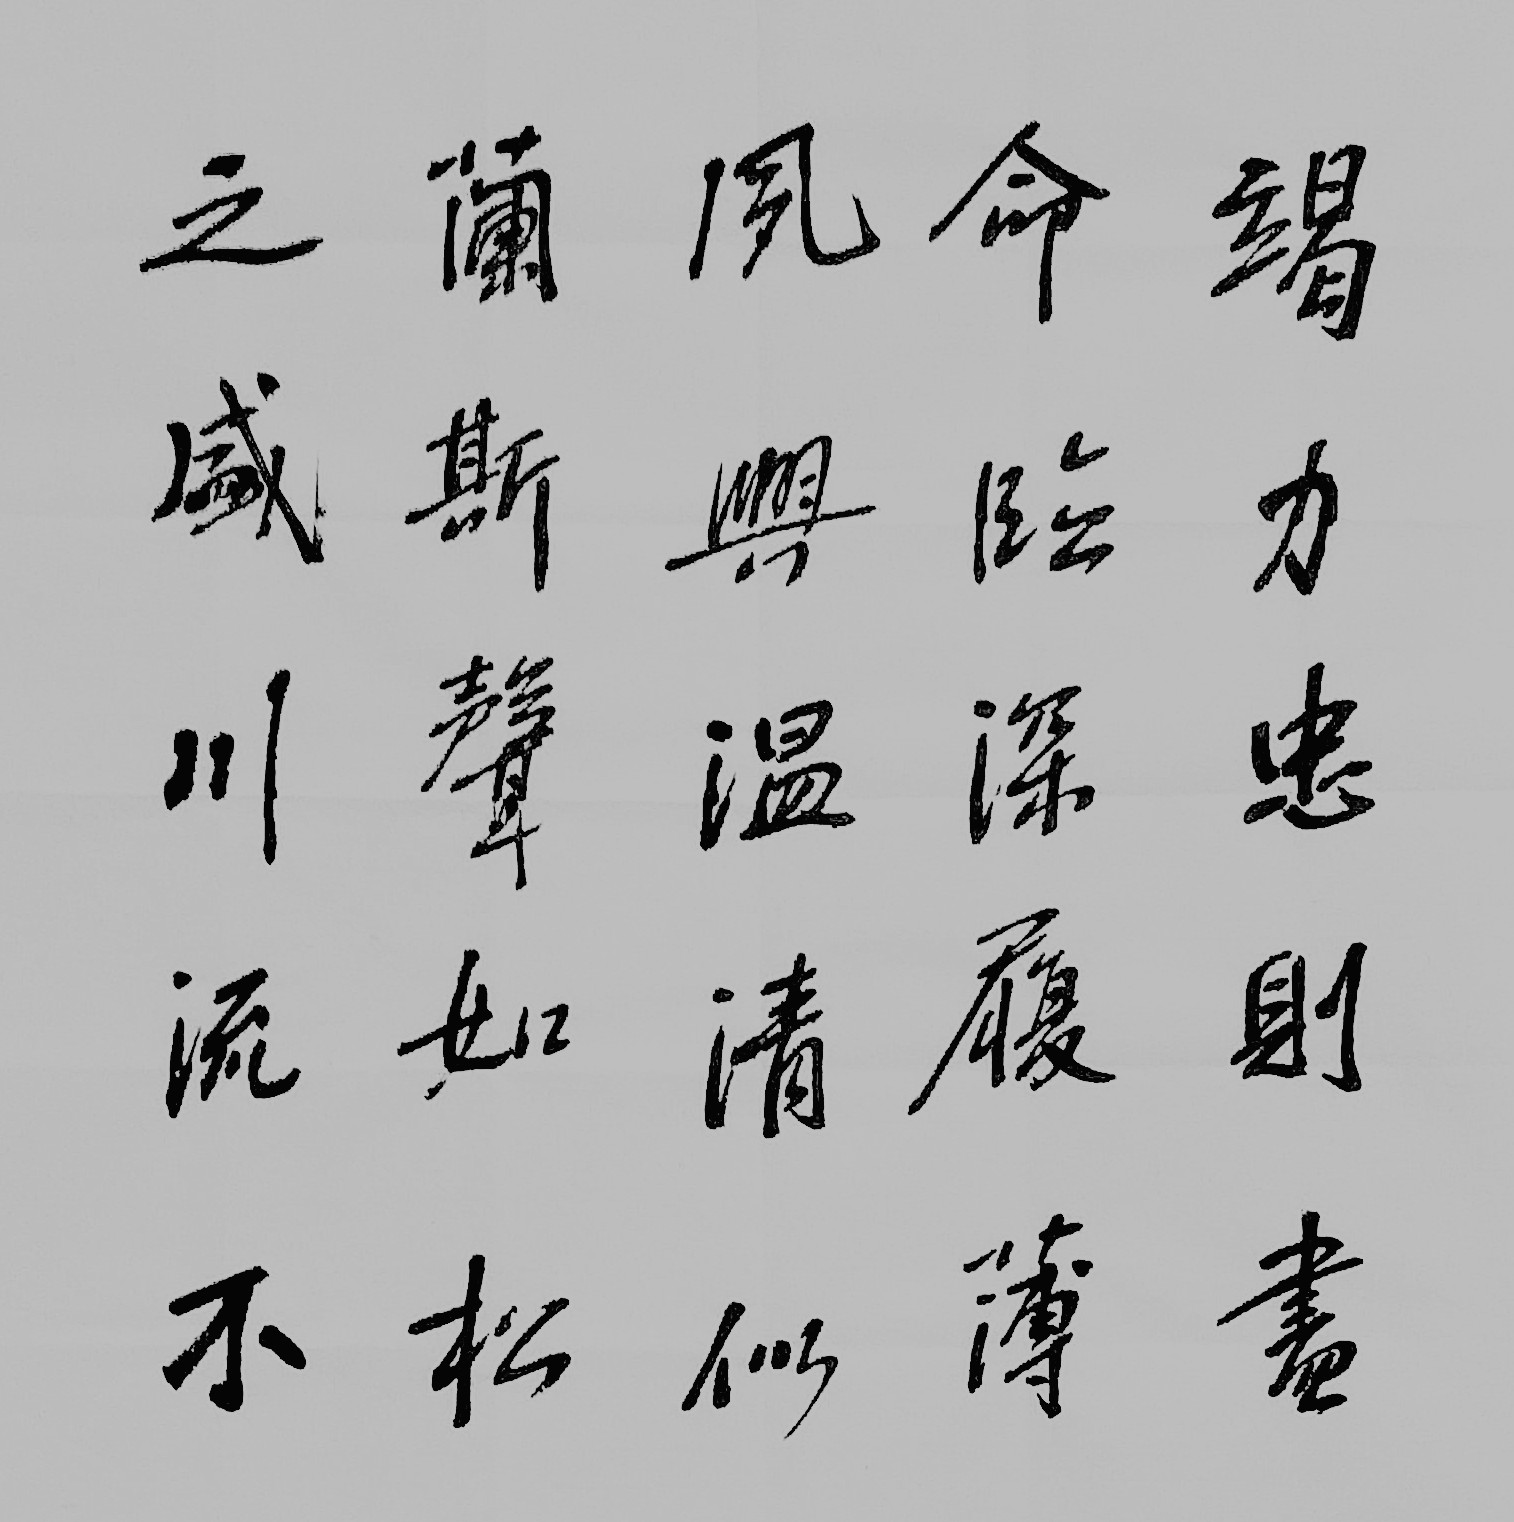 竭力忠則盡
命臨深履薄
夙興温清似
蘭斯聲如松
之盛川流不